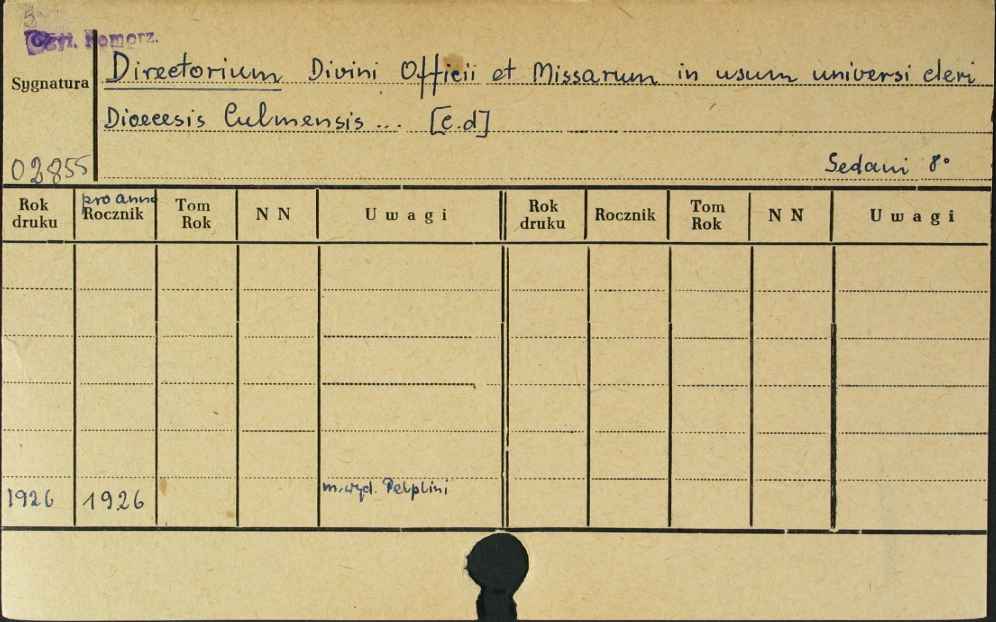 Czyt. Pomorz.
Sygnatura
Directorium Divini Officii et Missarum in usum universi cleri
Dioecesis Culmensis ... [c.d]
02855
Sedani 8°
Rok druku | pro anno Rocznik | Tom Rok | N N | Uwagi | Rok druku | Rocznik | Tom Rok | N N | Uwagi
1926 | 1926 | m.wyd. Pelplini